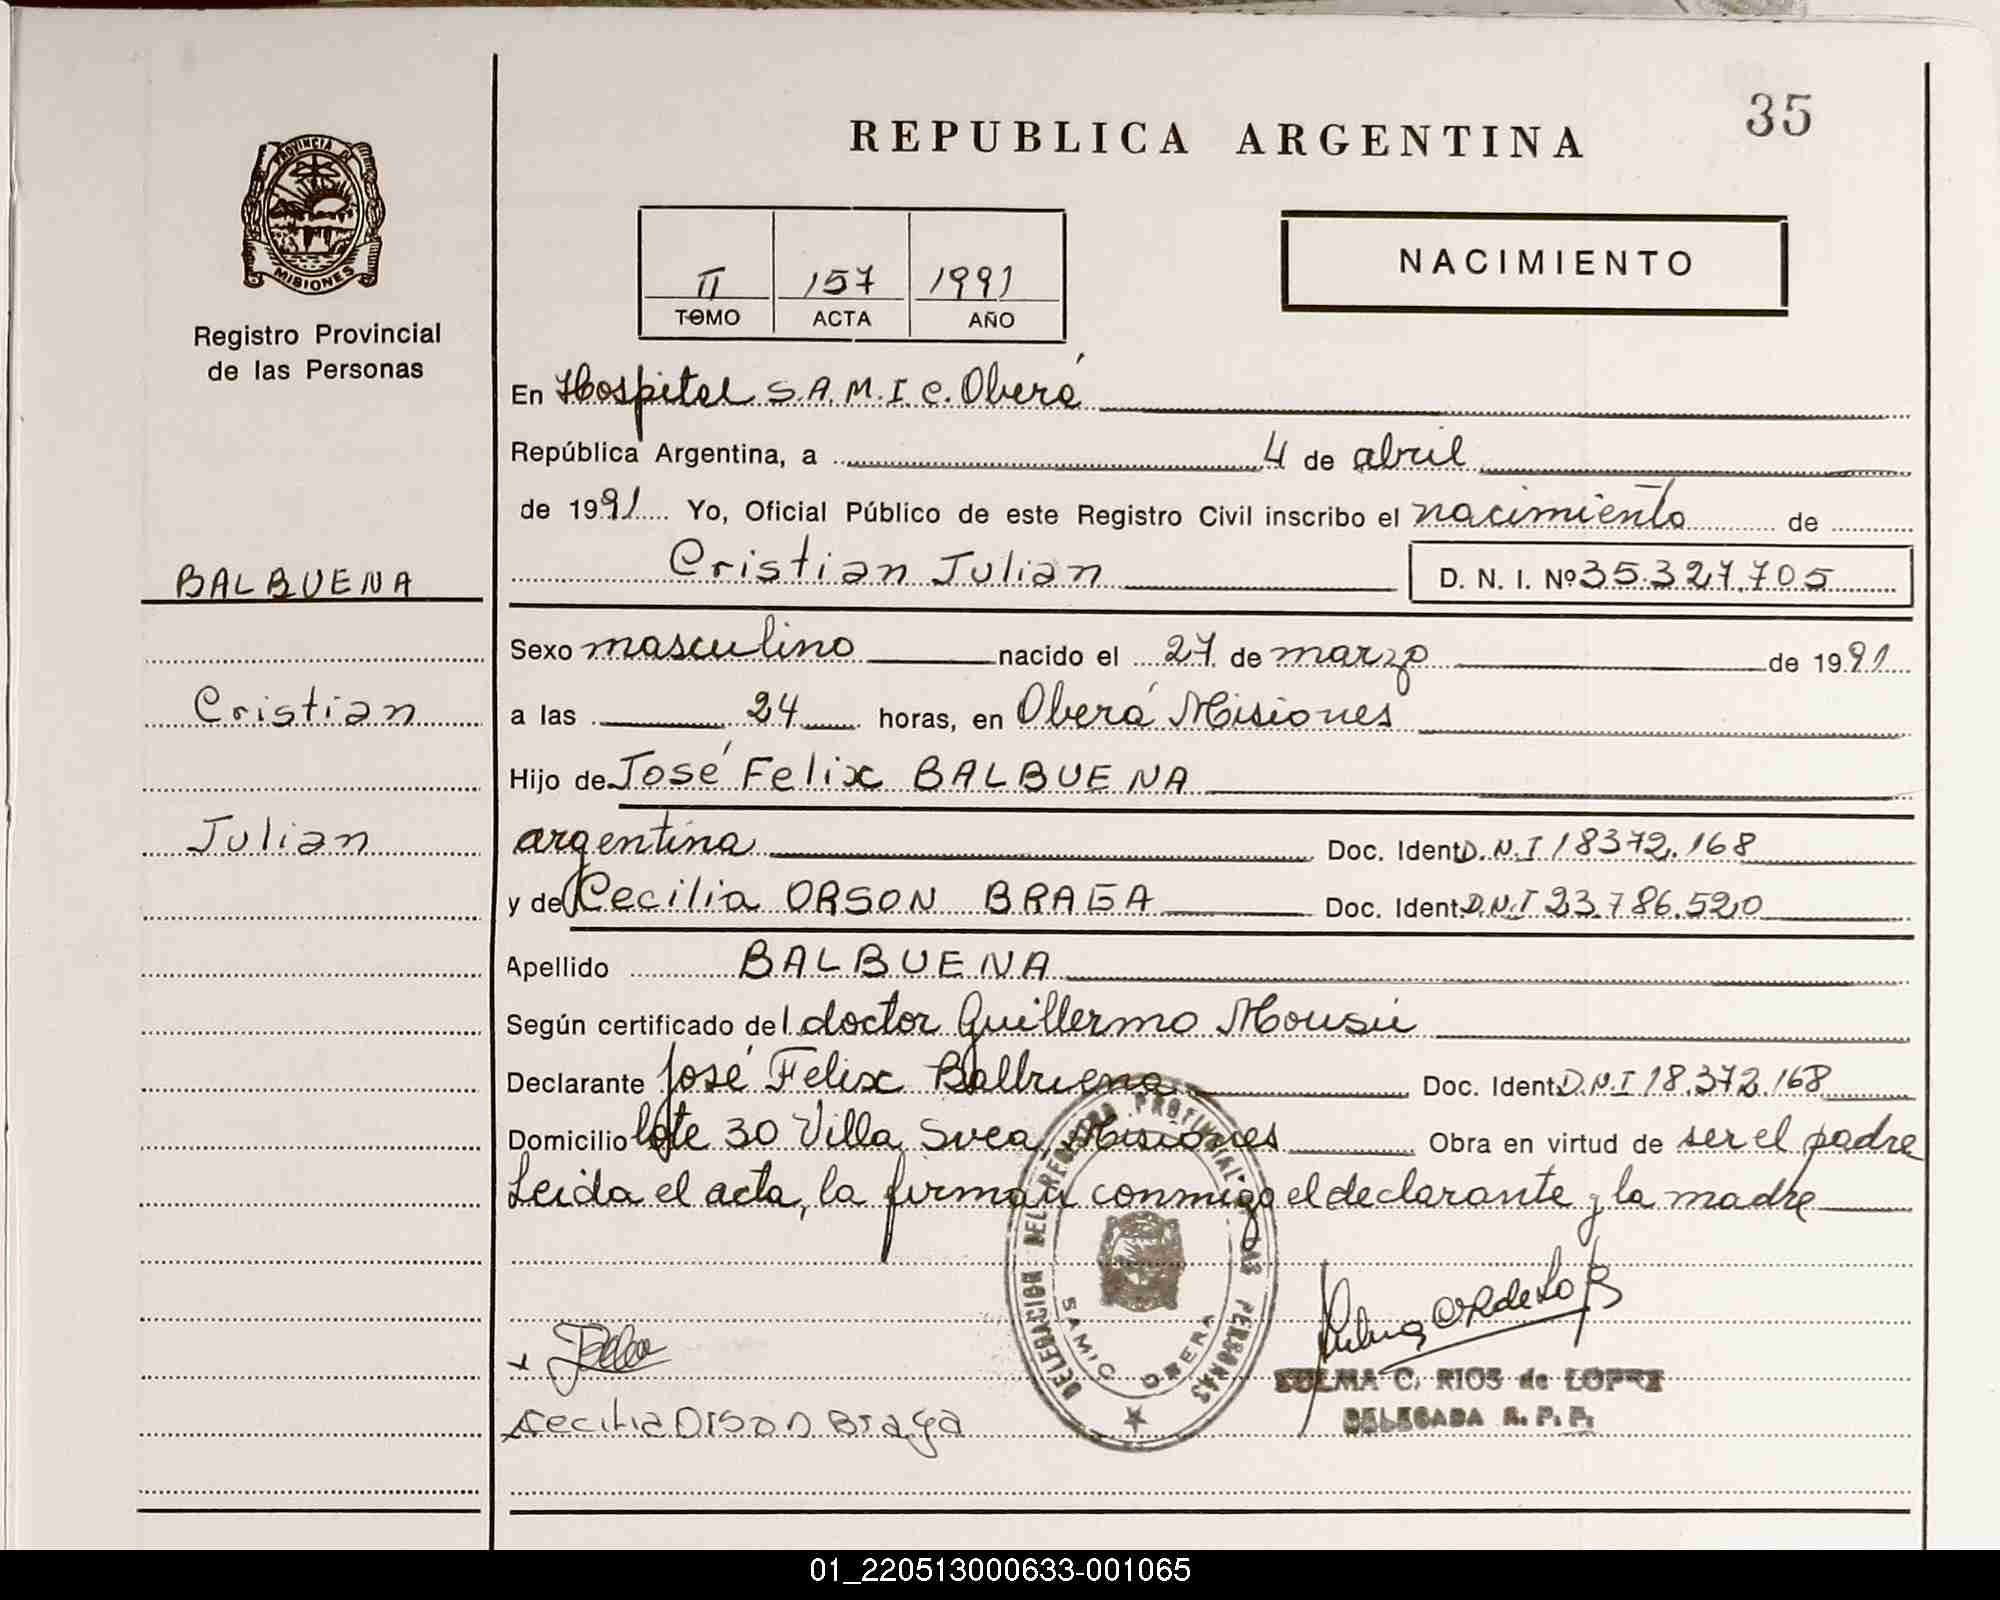 35
REPUBLICA ARGENTINA
PROVINCIA DE
MISIONES
Registro Provincial
de las Personas
II 157 1991
TOMO ACTA AÑO
NACIMIENTO
En Hospital S.A.M.I.C. Oberá
República Argentina, a 4 de abril
de 1991 Yo, Oficial Público de este Registro Civil inscribo el nacimiento de
Cristian Julian D. N. I. Nº 35.327.705
BALBUENA
Cristian
Julian
Sexo masculino nacido el 27 de marzo de 1991
a las 24 horas, en Oberá Misiones
Hijo de José Felix BALBUENA
argentina Doc. Ident. D.N.I 18372.168
y de Cecilia ORSON BRAGA Doc. Ident. D.N.I 23.786.520
Apellido BALBUENA
Según certificado del doctor Guillermo Mousú
Declarante José Felix Balbuena Doc. Ident. D.N.I 18.372.168
Domicilio lote 30 Villa Svea, Misiones Obra en virtud de ser el padre
Leida el acta, la firman conmigo el declarante y la madre
DELEGACION DEL REGISTRO PROVINCIAL DE LAS PERSONAS
SAMIC OBERA
Cecilia Orson Braga
ZULMA C. RIOS de LOPEZ
DELEGADA R. P. P.
01_220513000633-001065